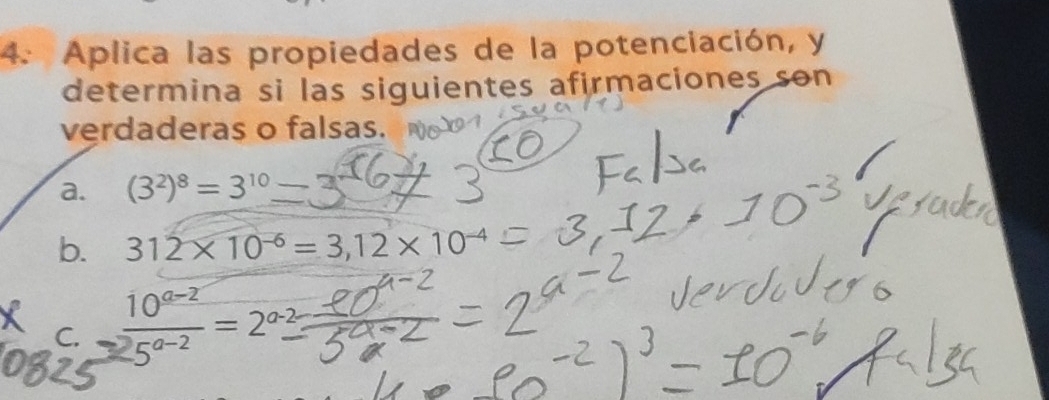 4. Aplica las propiedades de la potenciación, y
determina si las siguientes afirmaciones son
verdaderas o falsas.
a. (3²)⁸ = 3¹⁰ = 3¹⁶ ≠ 3¹⁰ Falsa
b. 312 × 10⁻⁶ = 3,12 × 10⁻⁴ = 3,12 · 10⁻³
c. 10ᵃ⁻²/5ᵃ⁻² = 2ᵃ⁻² = 2ᵃ⁻² verdadero
10⁻²)³ = 10⁻⁶ falsa